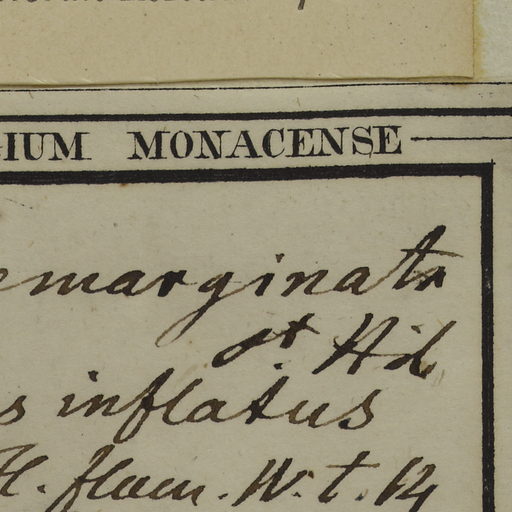 IUM MONACENSE
emarginata
st. Hil
s inflatus
fl. flum. W. t.